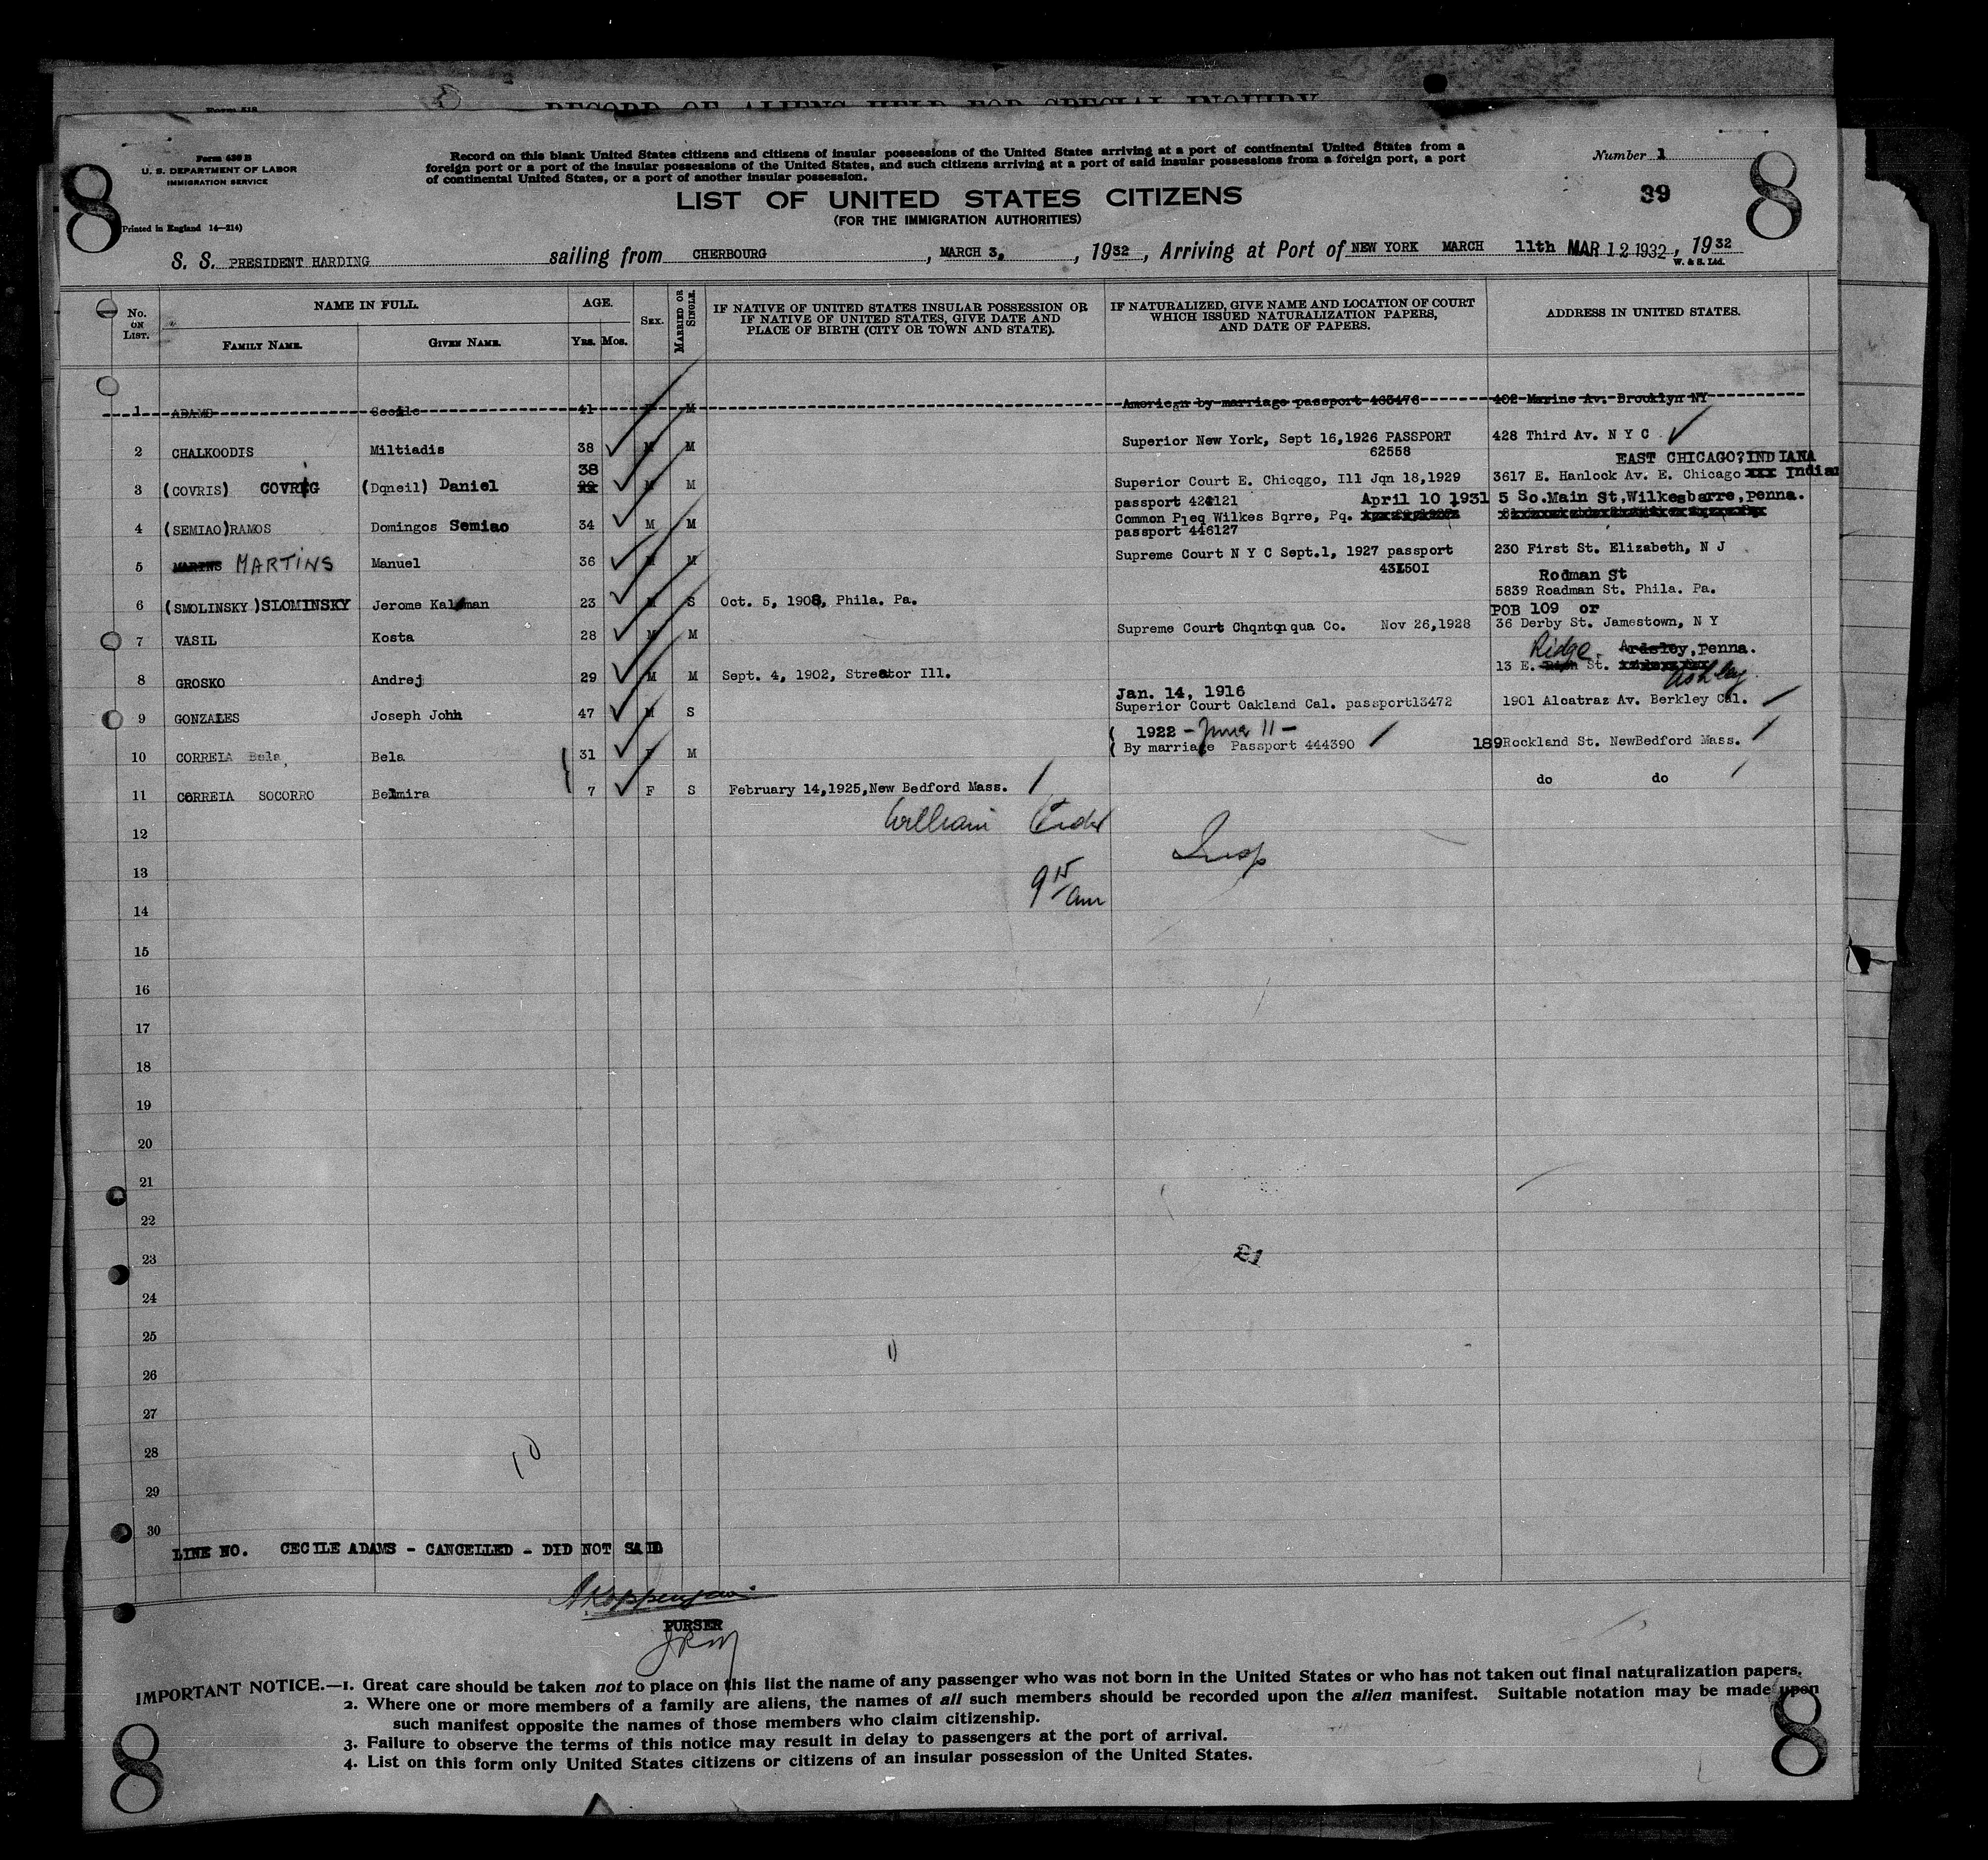 RECORD OF ALIENS HELD FOR SPECIAL INQUIRY
Form 630 B
U. S. DEPARTMENT OF LABOR
IMMIGRATION SERVICE
(Printed in England 14—214)
8
8
Record on this blank United States citizens and citizens of insular possessions of the United States arriving at a port of continental United States from a
foreign port or a port of the insular possessions of the United States, and such citizens arriving at a port of said insular possessions from a foreign port, a port
of continental United States, or a port of another insular possession.
Number 1
39
LIST OF UNITED STATES CITIZENS
(FOR THE IMMIGRATION AUTHORITIES)
S. S. PRESIDENT HARDING sailing from CHERBOURG, MARCH 3, 1932, Arriving at Port of NEW YORK MARCH 11th MAR 12 1932, 1932
W. & S. Ltd.
No. ON LIST. NAME IN FULL. AGE. SEX. MARRIED OR SINGLE. IF NATIVE OF UNITED STATES INSULAR POSSESSION OR IF NATIVE OF UNITED STATES, GIVE DATE AND PLACE OF BIRTH (CITY OR TOWN AND STATE). IF NATURALIZED, GIVE NAME AND LOCATION OF COURT WHICH ISSUED NATURALIZATION PAPERS, AND DATE OF PAPERS. ADDRESS IN UNITED STATES.
FAMILY NAME. GIVEN NAME. YRS. MOS.
1 ADAMS Cecile 41 F M American by marriage passport 463476 402 Marine Av. Brooklyn NY
2 CHALKOODIS Miltiadis 38 M M Superior New York, Sept 16,1926 PASSPORT 428 Third Av. N Y C
62558
38 EAST CHICAGO?INDIANA
3 (COVRIS) COVRIG (Dqneil) Daniel M M Superior Court E. Chicqgo, Ill Jqn 18,1929 3617 E. Hanlock Av. E. Chicago xxx Indian
passport 424121 April 10 1931 5 So.Main St,Wilkesbarre,penna.
4 (SEMIAO)RAMOS Domingos Semiao 34 M M Common Pleq Wilkes Bqrre, Pq.
passport 446127
5 MARTINS Manuel 36 M M Supreme Court N Y C Sept.1, 1927 passport 230 First St. Elizabeth, N J
431501
Rodman St
6 (SMOLINSKY)SLOMINSKY Jerome Kalman 23 M S Oct. 5, 1908, Phila. Pa. 5839 Roadman St. Phila. Pa.
POB 109 or
7 VASIL Kosta 28 M M Supreme Court Chqntqnqua Co. Nov 26,1928 36 Derby St. Jamestown, N Y
Ridge Ardsley,Penna.
8 GROSKO Andrej 29 M M Sept. 4, 1902, Streator Ill. 13 E. St.
Ashley
Jan. 14, 1916
9 GONZALES Joseph John 47 M S Superior Court Oakland Cal. passport13472 1901 Alcatraz Av. Berkley Cal.
1922 - June 11 -
10 CORREIA Bela, Bela 31 F M By marriage Passport 444390 189Rockland St. NewBedford Mass.
11 CORREIA SOCORRO Belmira 7 F S February 14,1925,New Bedford Mass. do do
12
William
Insp
13
9 15 am
14
15
16
17
18
19
20
21
22
23
24
25
26
27
28
10
29
30
LINE NO. CECILE ADAMS - CANCELLED - DID NOT SAIL
PURSER
IMPORTANT NOTICE.—1. Great care should be taken not to place on this list the name of any passenger who was not born in the United States or who has not taken out final naturalization papers.
2. Where one or more members of a family are aliens, the names of all such members should be recorded upon the alien manifest. Suitable notation may be made upon
such manifest opposite the names of those members who claim citizenship.
3. Failure to observe the terms of this notice may result in delay to passengers at the port of arrival.
4. List on this form only United States citizens or citizens of an insular possession of the United States.
8
8